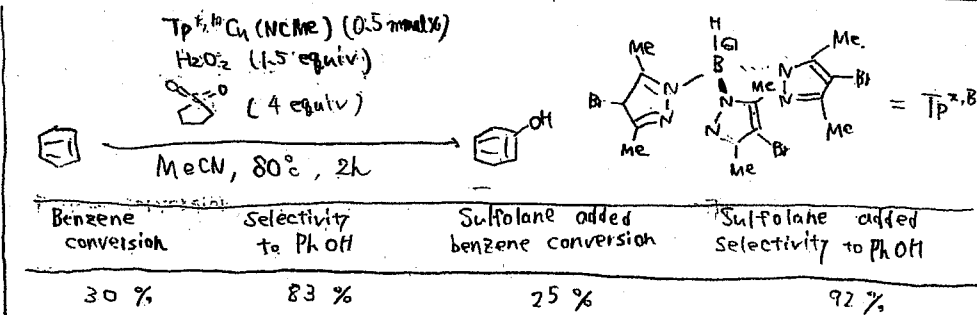 Tp*,Br Cu (NCMe) (0.5 mmol%)
H2O2 (1.5 equiv.)
O O
S
(4 equiv)
MeCN, 80°C, 2h
OH
H
⊖
B
Me
Me
Br
N
N
N
N
N
N
Me
Me
Br
Me
Br
Me
= Tp*,B
Benzene conversion
Selectivity to PhOH
Sulfolane added benzene conversion
Sulfolane added Selectivity to PhOH
30 % 83 % 25 % 92 %